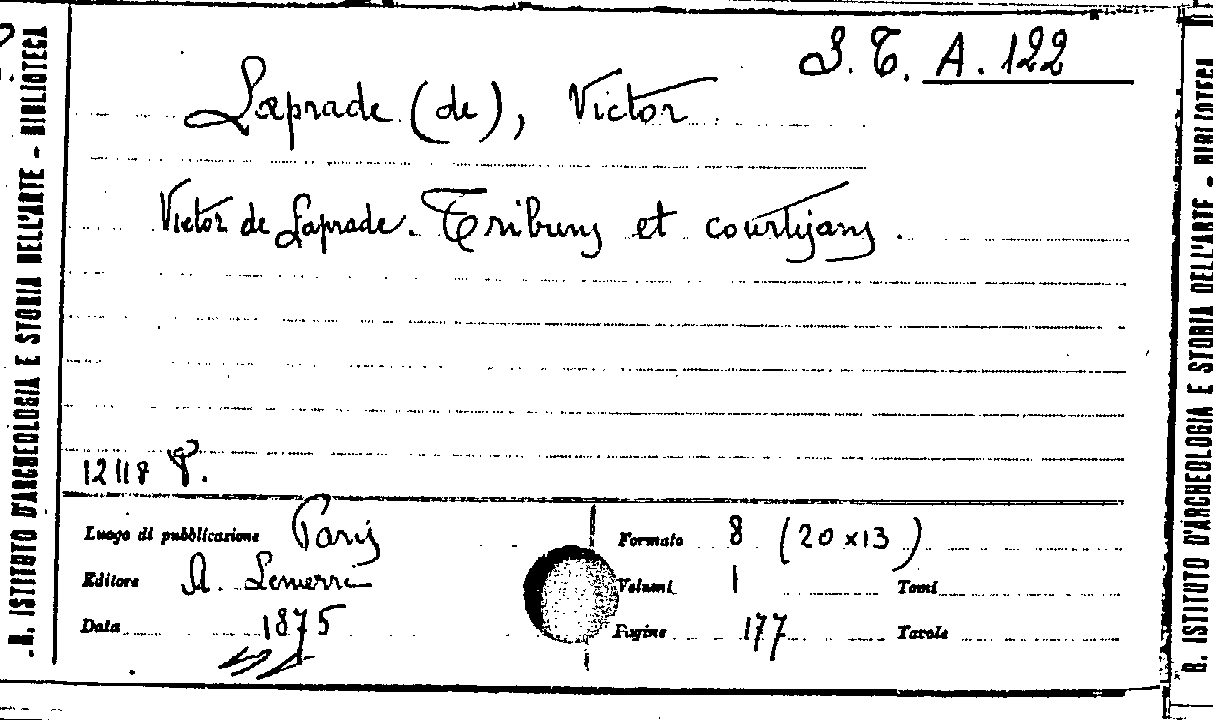 S. T. A. 122
Laprade (de), Victor
Victor de Laprade. Tribuns et courtisans.
12118
Luogo di pubblicazione Paris
Formato 8 (20 x 13)
Editore A. Lemerre
Volumi 1 Tomi
Data 1875
Pagine 177 Tavole
R. ISTITUTO D'ARCHEOLOGIA E STORIA DELL'ARTE - BIBLIOTECA
R. ISTITUTO D'ARCHEOLOGIA E STORIA DELL'ARTE - BIBLIOTECA